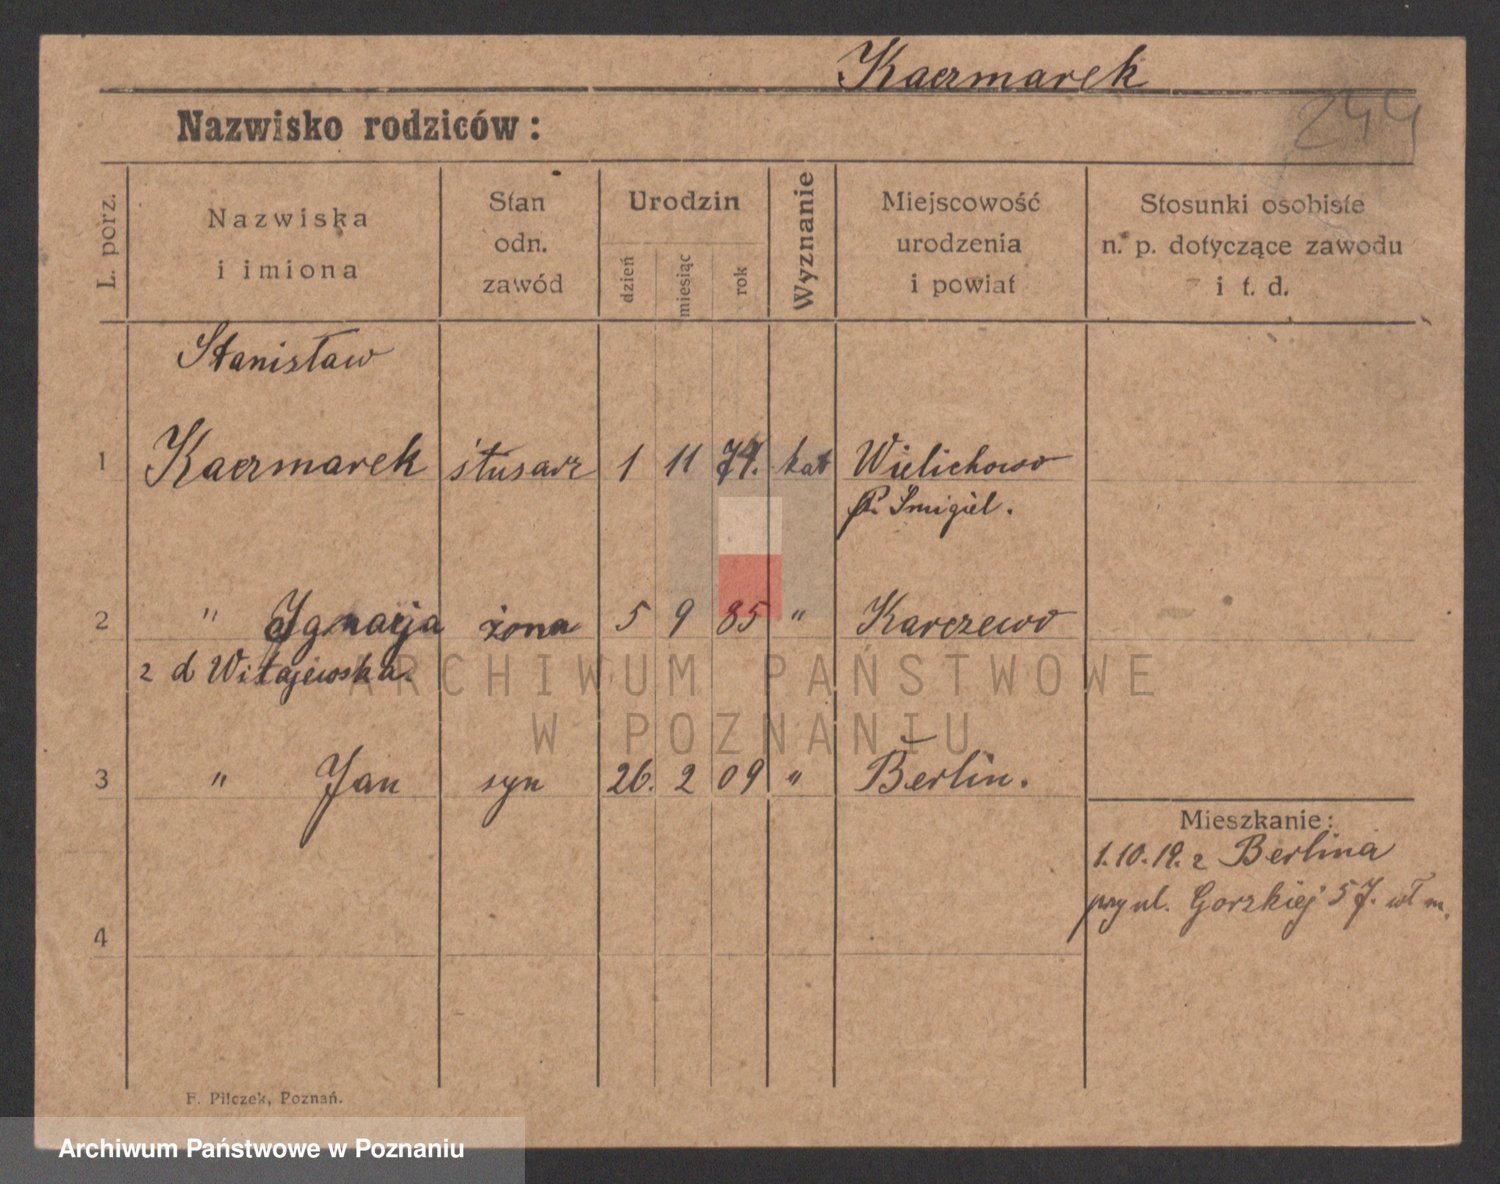 Kaczmarek
244
Nazwisko rodziców:
L. porz.
Nazwiska i imiona
Stan odn. zawód
Urodzin
dzień miesiąc rok
Wyznanie
Miejscowość urodzenia i powiat
Stosunki osobiste n. p. dotyczące zawodu i t. d.
Stanisław
1 Kaczmarek ślusarz 1 11 74. kat Wielichowo
P. Śmigiel.
2 " Ignacja żona 5 9 85 " Karczewo
z d Witajewska.
ARCHIWUM PAŃSTWOWE
W POZNANIU
3 " Jan syn 26. 2 09 " Berlin.
Mieszkanie:
1.10.19. z Berlina
przy ul. Gorzkiej 57. wł m.
4
F. Pilczek, Poznań.
Archiwum Państwowe w Poznaniu